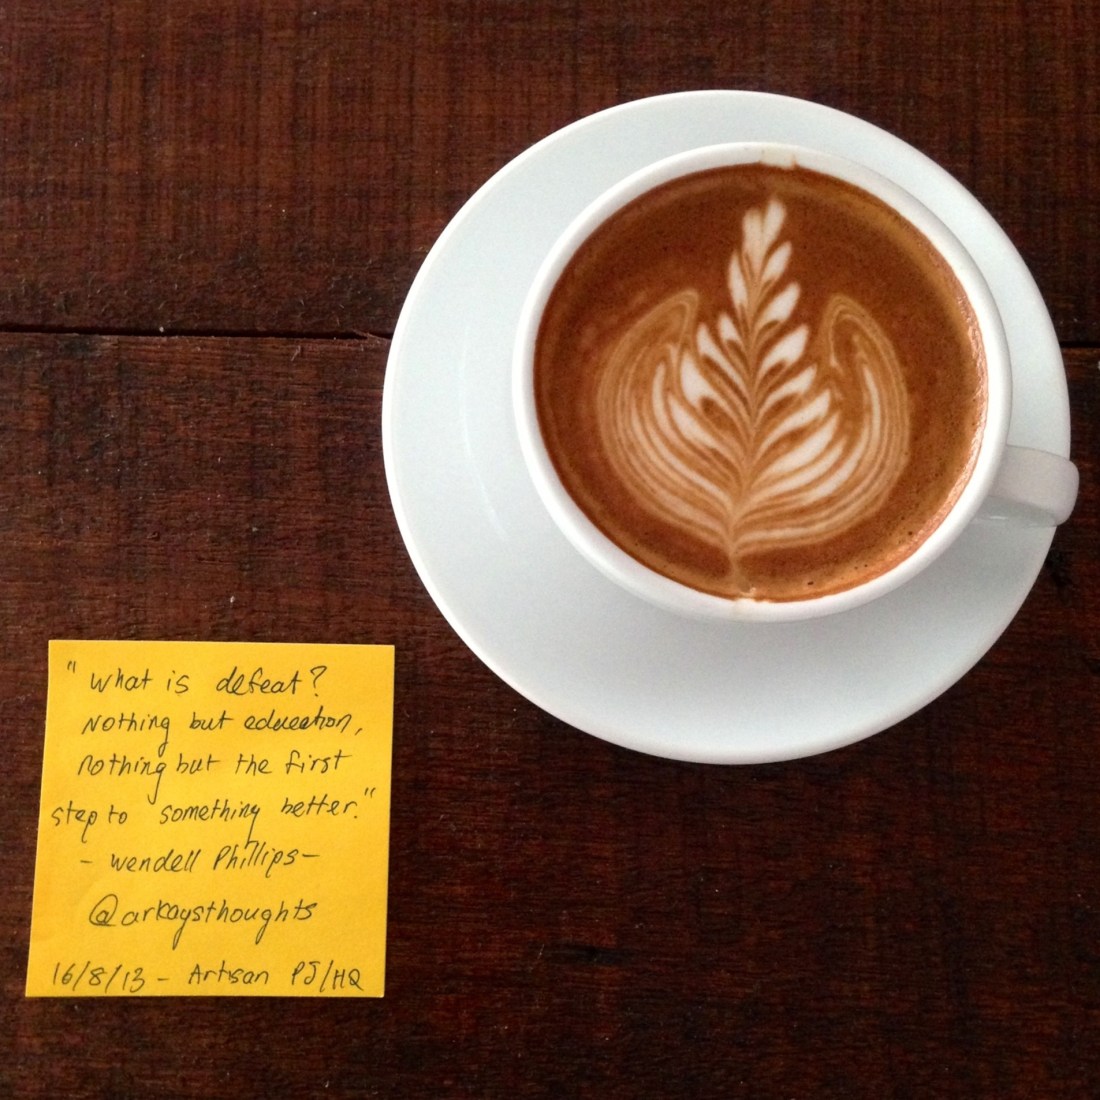 "What is defeat?
Nothing but education,
nothing but the first
step to something better."
- Wendell Phillips -
@arkaysthoughts
16/8/13 - Artisan PJ/HQ